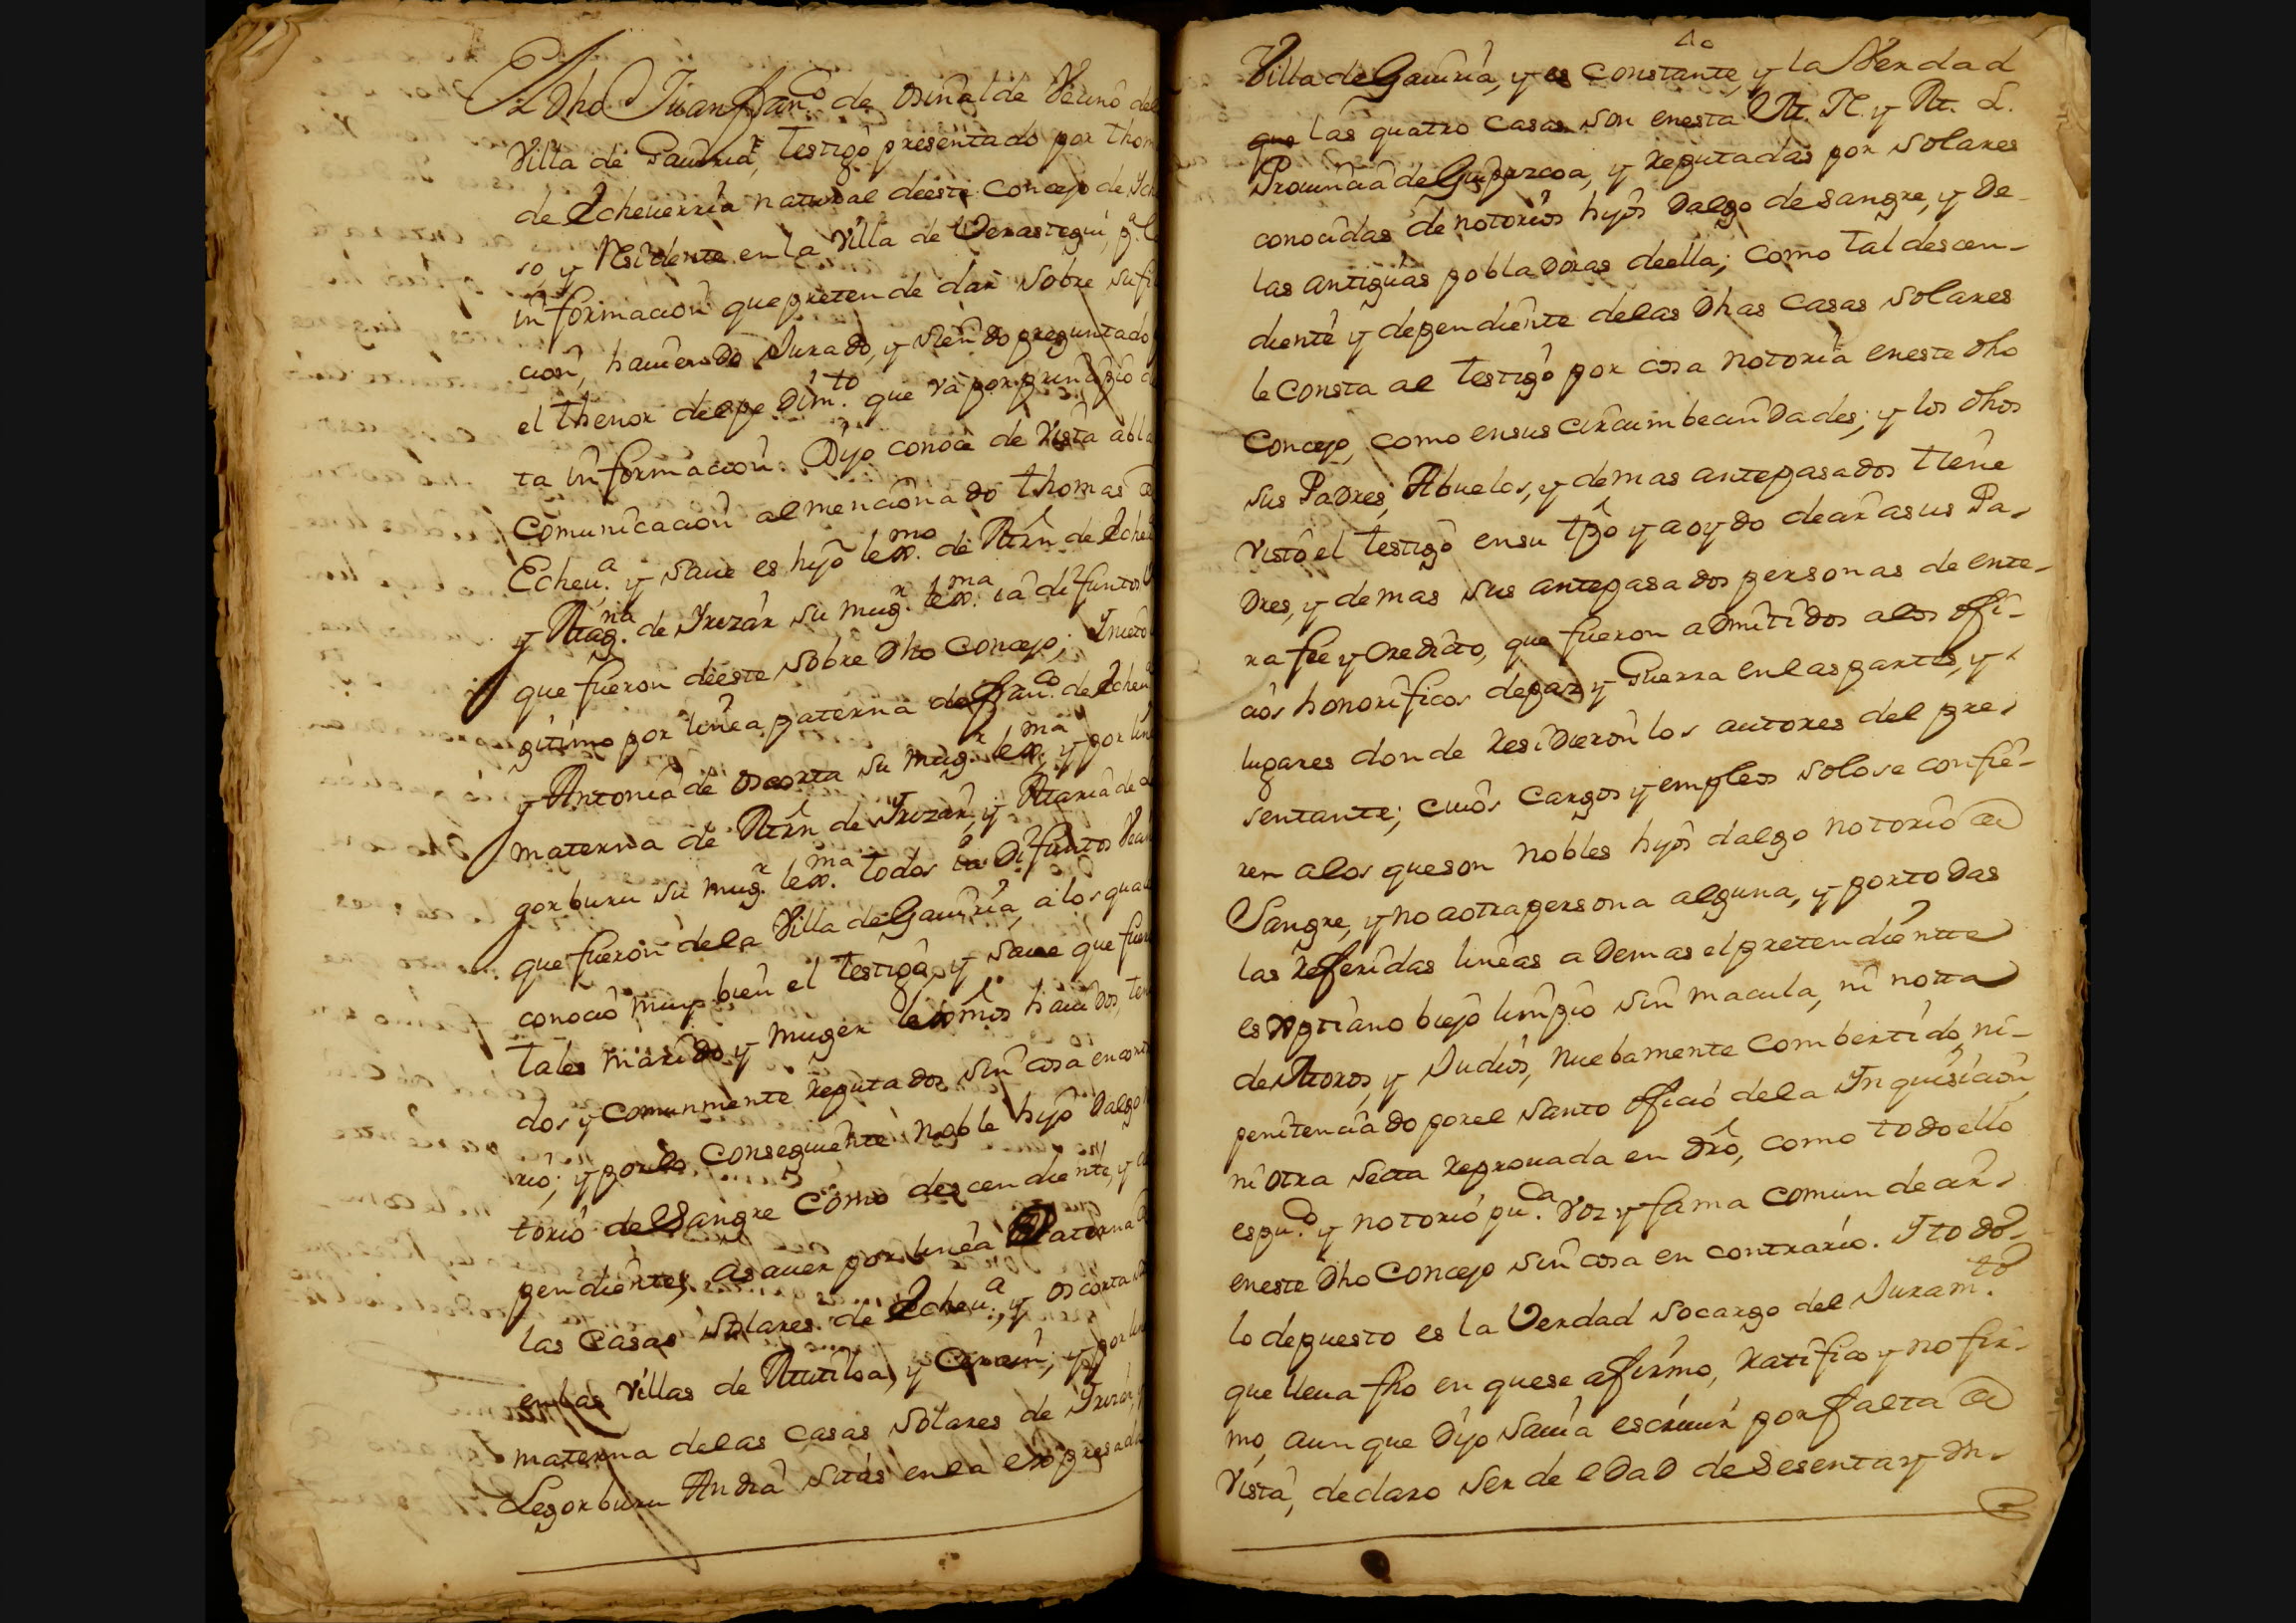 El Dho Juan Fran.co de osinalde Vecino del
Villa de Gauiria, testigo presentado por thom
de Echeuerria natural deeste Concejo de Ych
so, y Residente en la Villa de Verastegui, p.a l
informacion que pretende dar sobre su fi
cion, hauiendo Jurado, y siendo preguntado
el thenor del pedim.to que va por prinzipio
ta informacion. Dijo conoce de Vista abla
Comunicacion al mencionado thomas de
Echeu.a y saue es hijo lex.mo de Mrn de Eche
y Mag.na de Yrizar su mug.r lex.ma ia difuntos
que fueron deeste sobre Dho Concejo; Y nieto
gitimo por linea paterna de Fran.co de Echeu
y Antonia de oscorta su mug.r lex.ma y por lin
materna de Mrn de Yrizar, y Maria de
gorburu su mug.r lex.ma todos ia Difuntos Vecin
que fueron dela Villa de Gauiria, a los qua
conocio muy bien el testigo, y saue que fuer
tales marido y muger lexmos hauidos, ten
dos y comunmente Reputados sin cosa en contr
rio; y por lo Consequiente noble hijo Dalgo
torio de Sangre como descendiente, y
pendiente, asauer por linea Paterna
las Casas Solares de Echeu.a, y oscorta
en las Villas de Mutiloa, y Cerain; y por lin
materna delas Casas Solares de Yrizar,
Legorburu Andra sitas en la expresada
40
Villa de Gauiria, y es constante, y la Verdad
que las quatro casas son enesta M. N. y M. L.
Prouincia de Guipuzcoa, y Reputadas por solares
conocidas de notorios hijos Dalgo de sangre, y De
las antiguas pobladoras deella; como tal descen-
diente y dependiente delas Dhas casas solares
le consta al testigo por cosa notoria eneste dho
Concejo, como ensus circumbecindades; y los dhos
sus Padres, Abuelos, y demas antepasados tiene
visto el testigo ensu tpo y a oydo decir asus Pa-
dres, y demas sus antepasados personas de ente-
ra fee y Credito, que fueron admitidos alos offi-
cios honorificos depaz y Guerra enlas partes, y
lugares donde Residieron los autores del pre-
sentante; cuios cargos y empleos solose confie-
ren alos queson nobles hijos dalgo notorio de
Sangre, y no aotra persona alguna, y portodas
las Referidas lineas a Demas el pretendiente
es xptiano biejo limpio sin macula, ni notta
de Moros, y Judios, nuebamente combertido, ni-
penitenciado por el Santo officio dela Inquisicion
ni otra secta Reprouada en dro, como todoello
es pu.co y notorio pu.ca voz y fama comun decir
eneste Dho Concejo sin cosa en contrario. Y todo
lo depuesto es la Verdad socargo del Juram.to
que lleua fho en quese afirmo, Ratifico y no fir-
mo, aunque Dijo sauia escriuir por falta de
Vista, declaro ser de edad de Sesenta y dn-